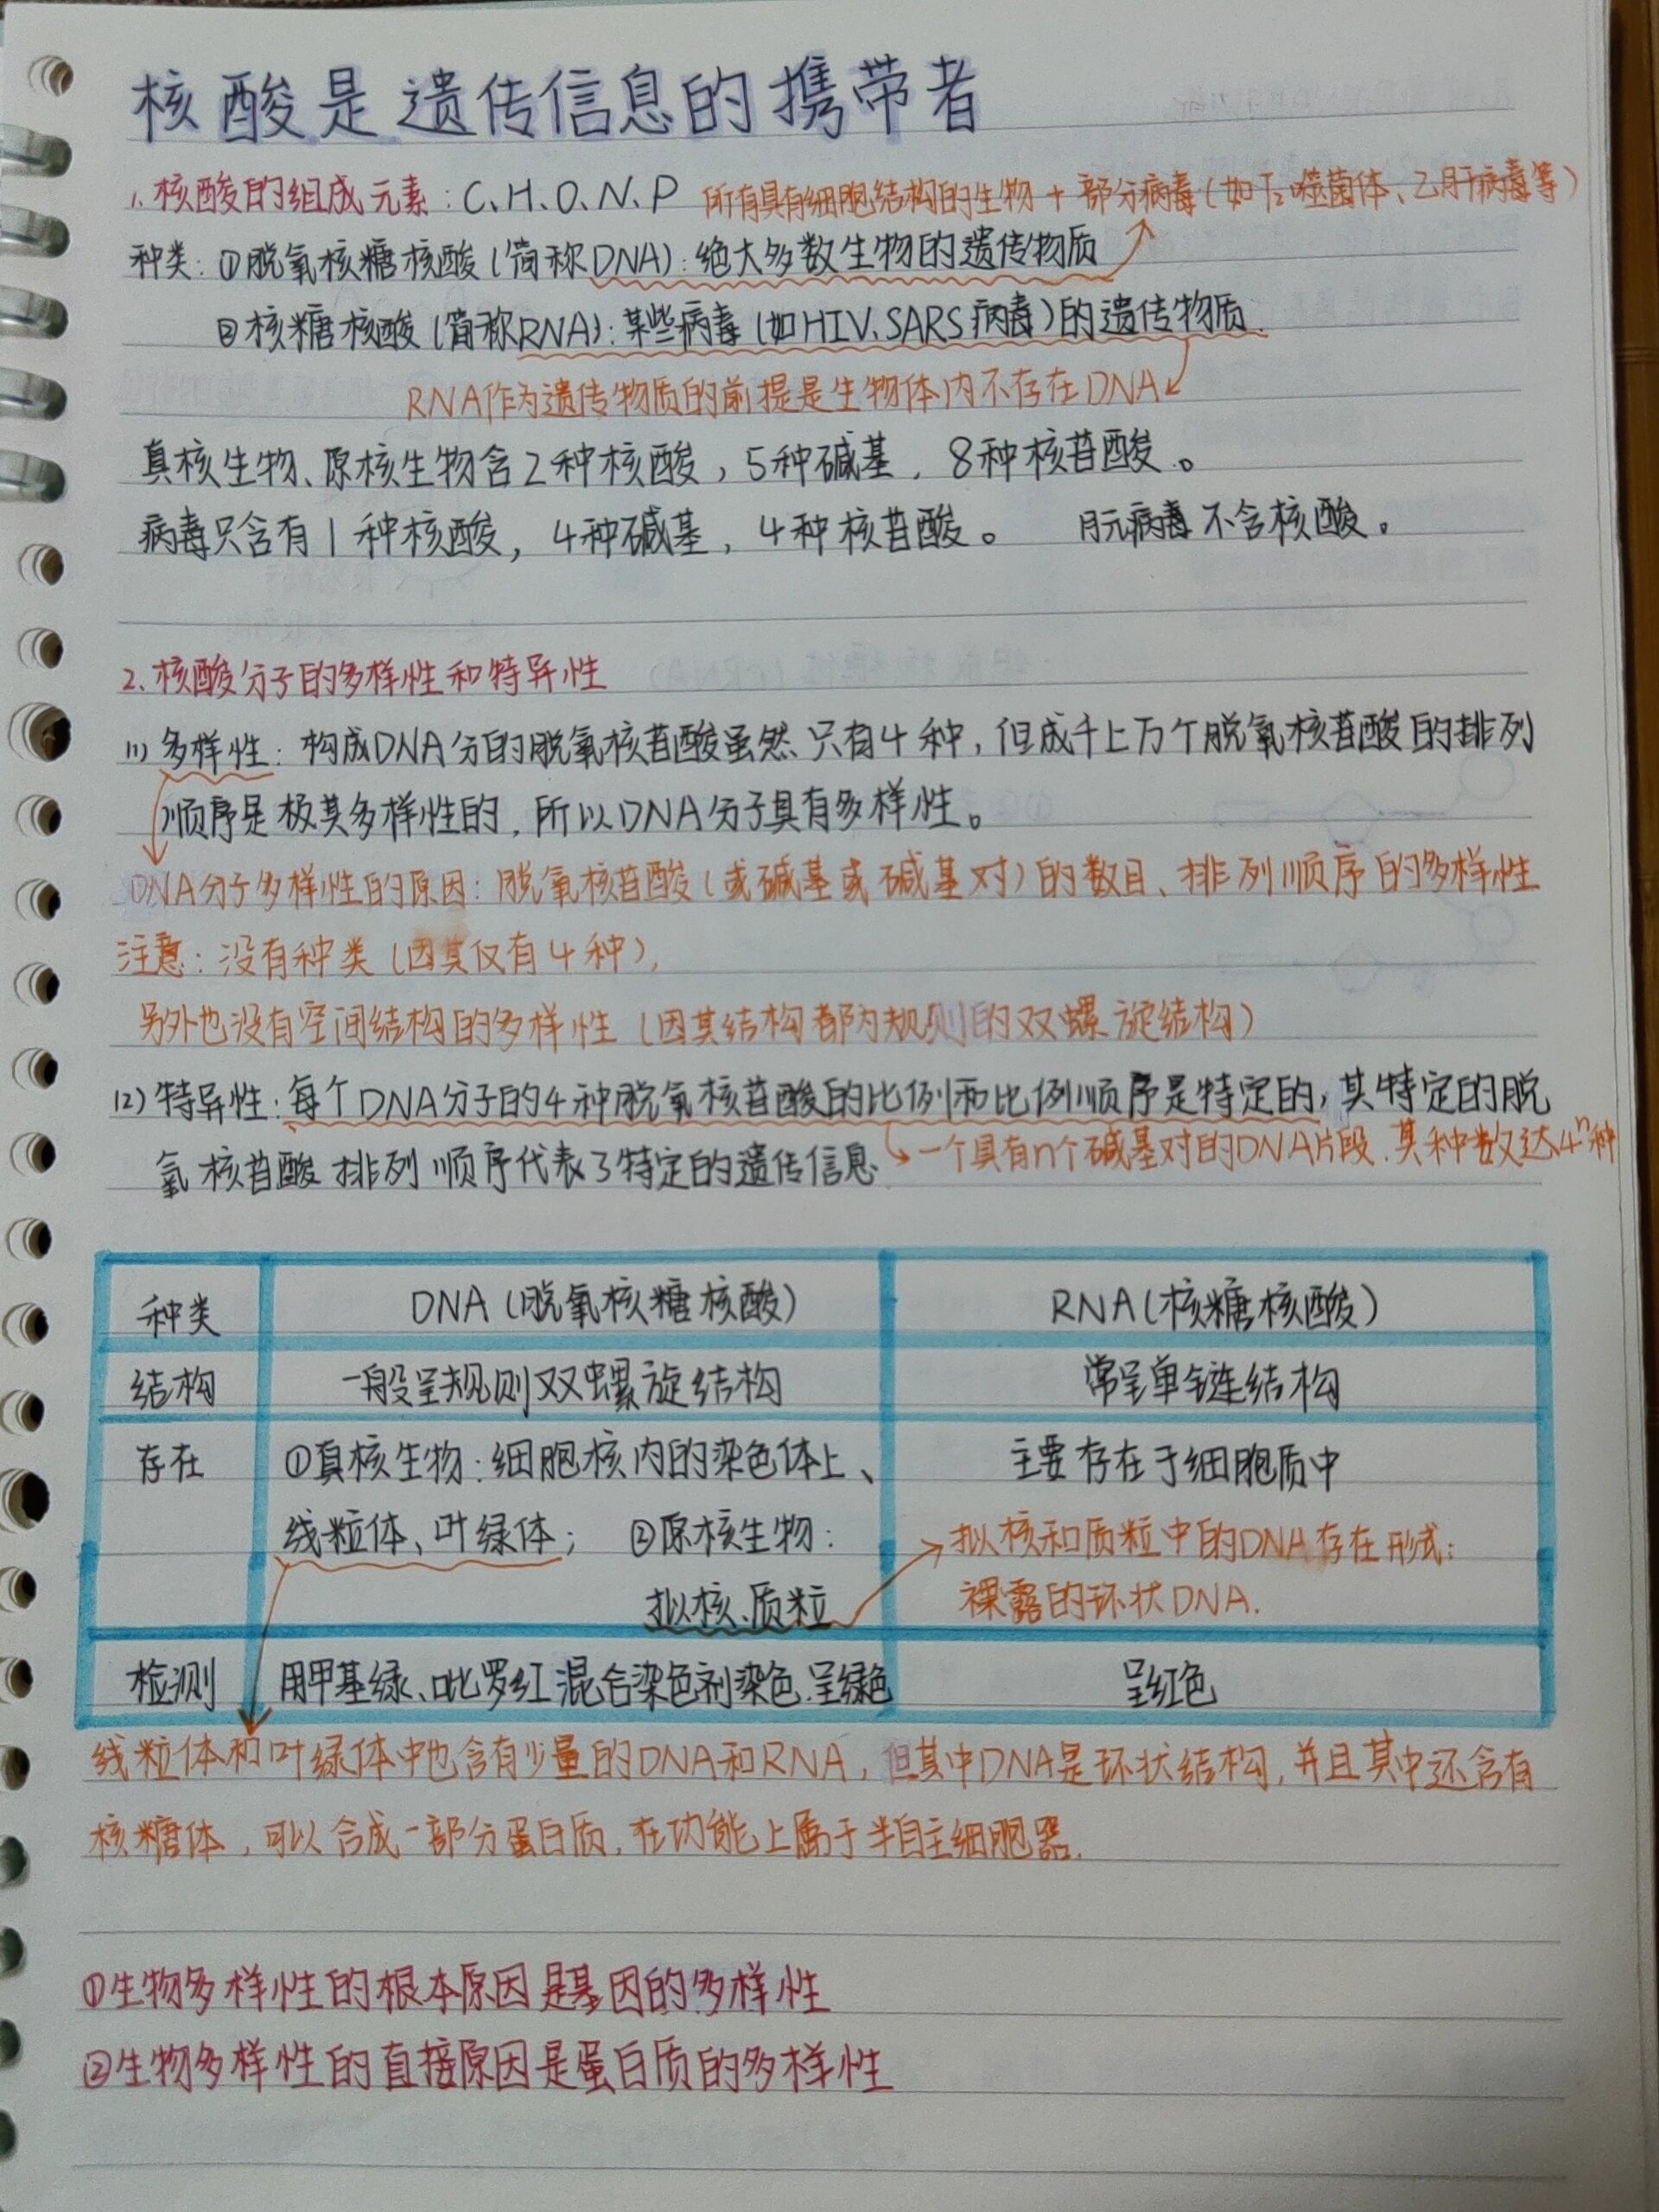 核酸是遗传信息的携带者
1、核酸的组成元素:C、H、O、N、P 所有具有细胞结构的生物+部分病毒(如T₂噬菌体、乙肝病毒等)
种类:①脱氧核糖核酸(简称DNA):绝大多数生物的遗传物质
②核糖核酸(简称RNA):某些病毒(如HIV、SARS病毒)的遗传物质.
RNA作为遗传物质的前提是生物体内不存在DNA
真核生物、原核生物含2种核酸,5种碱基,8种核苷酸。
病毒只含有1种核酸,4种碱基,4种核苷酸。 朊病毒不含核酸。
2、核酸分子的多样性和特异性
(1)多样性:构成DNA分的脱氧核苷酸虽然只有4种,但成千上万个脱氧核苷酸的排列
顺序是极其多样性的,所以DNA分子具有多样性。
DNA分子多样性的原因:脱氧核苷酸(或碱基或碱基对)的数目、排列顺序的多样性
注意:没有种类(因其仅有4种),
另外也没有空间结构的多样性(因其结构都为规则的双螺旋结构)
(2)特异性:每个DNA分子的4种脱氧核苷酸的比例和比例顺序是特定的,其特定的脱
氧核苷酸排列顺序代表了特定的遗传信息. 一个具有n个碱基对的DNA片段.其种数达4ⁿ种
种类 DNA(脱氧核糖核酸) RNA(核糖核酸)
结构 一般呈规则双螺旋结构 常呈单链结构
存在 ①真核生物:细胞核内的染色体上、 主要存在于细胞质中
线粒体、叶绿体; ②原核生物: 拟核和质粒中的DNA存在形式:
拟核、质粒 裸露的环状DNA.
检测 用甲基绿、吡罗红混合染色剂染色.呈绿色 呈红色
线粒体和叶绿体中也含有少量的DNA和RNA,但其中DNA是环状结构,并且其中还含有
核糖体,可以合成一部分蛋白质,在功能上属于半自主细胞器.
①生物多样性的根本原因是基因的多样性
②生物多样性的直接原因是蛋白质的多样性